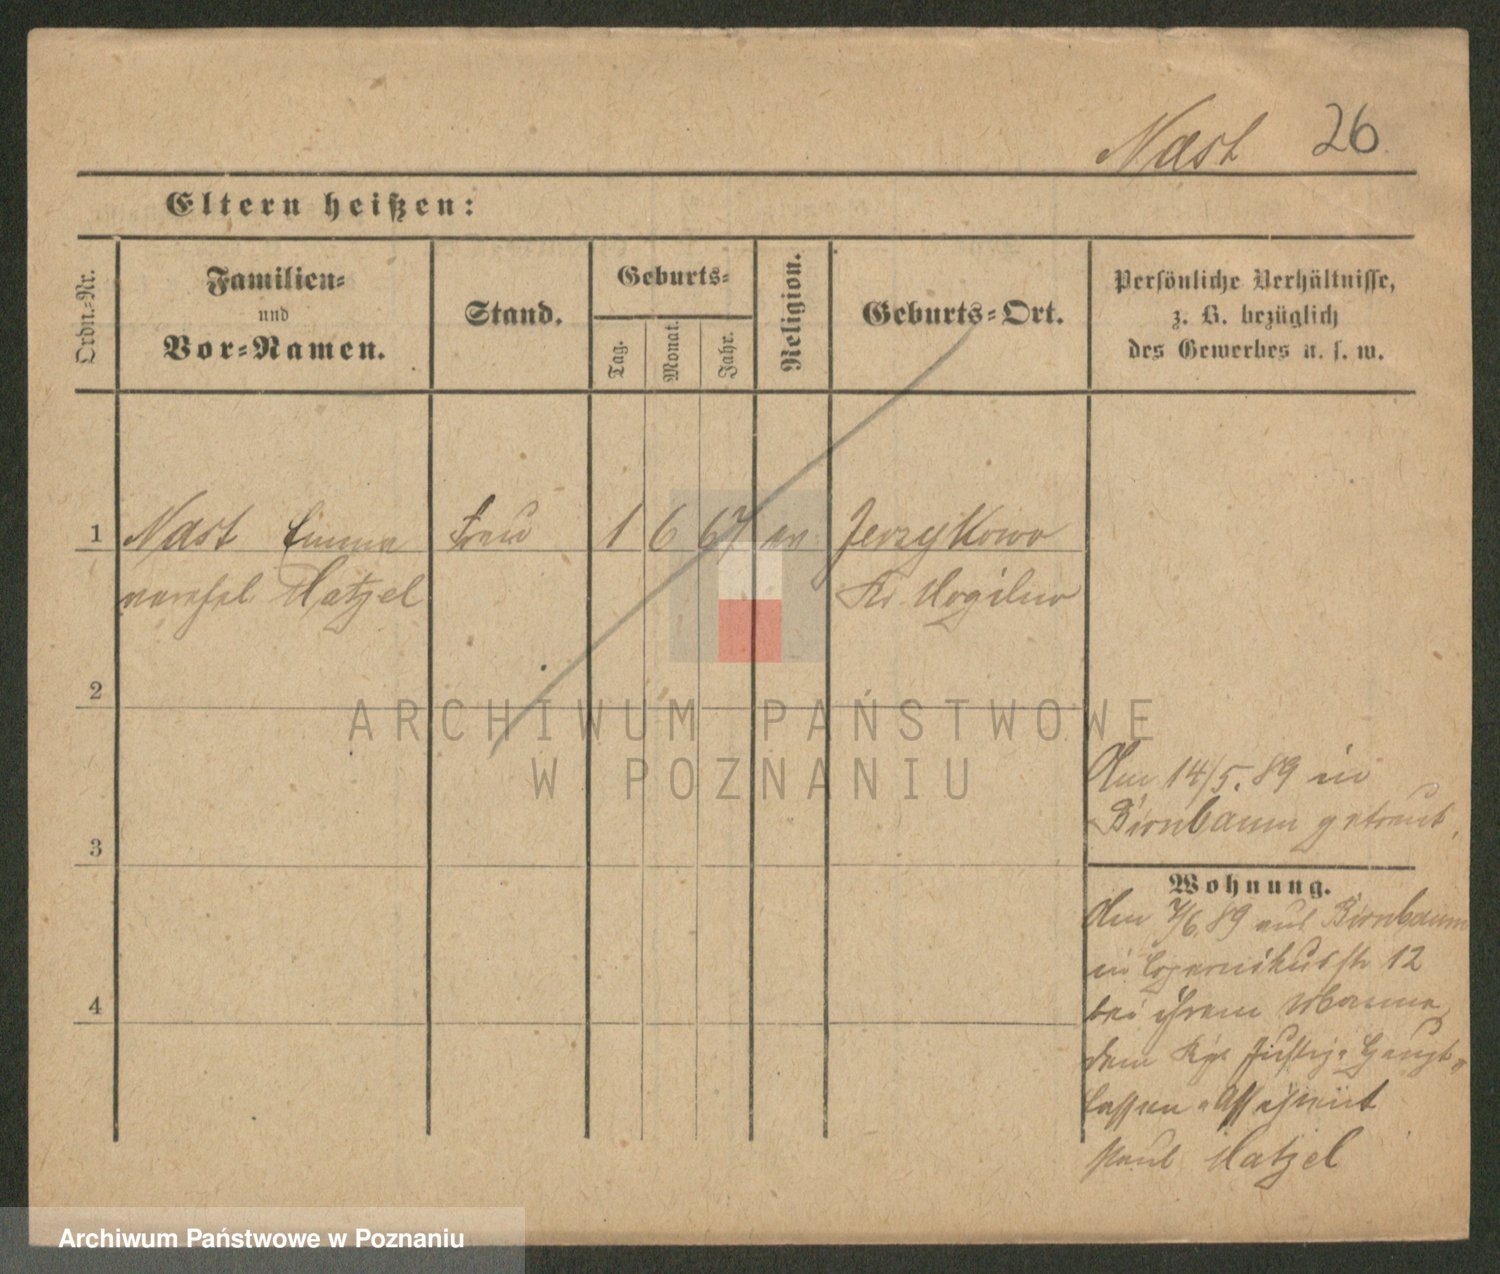 Nast 26
Eltern heißen:
Ordn.-Nr.
Familien-
und
Vor-Namen.
Stand.
Geburts-
Tag.
Monat.
Jahr.
Religion.
Geburts-Ort.
Persönliche Verhältnisse,
z. B. bezüglich
des Gewerbes u. s. w.
1 Nast Emma Frau 1 6 67 ev. Jerzykowo
Matzel Kr. Mogilno
2
3
4
Am 14/5.89 in
Birnbaum getraut.
Wohnung.
Am 7/6.89 aus Birnbaum
in Copernikusstr 12
bei ihrem Manne,
dem Kgl Justiz-Haupt-
kassen-Assistent
Paul Matzel
ARCHIWUM PAŃSTWOWE
W POZNANIU
Archiwum Państwowe w Poznaniu